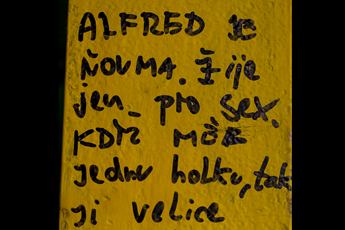 ALFRED JE
ŇOUMA. Žije
jen pro sex.
KDYŽ MŮŽE
jednu holku, tak
ji velice